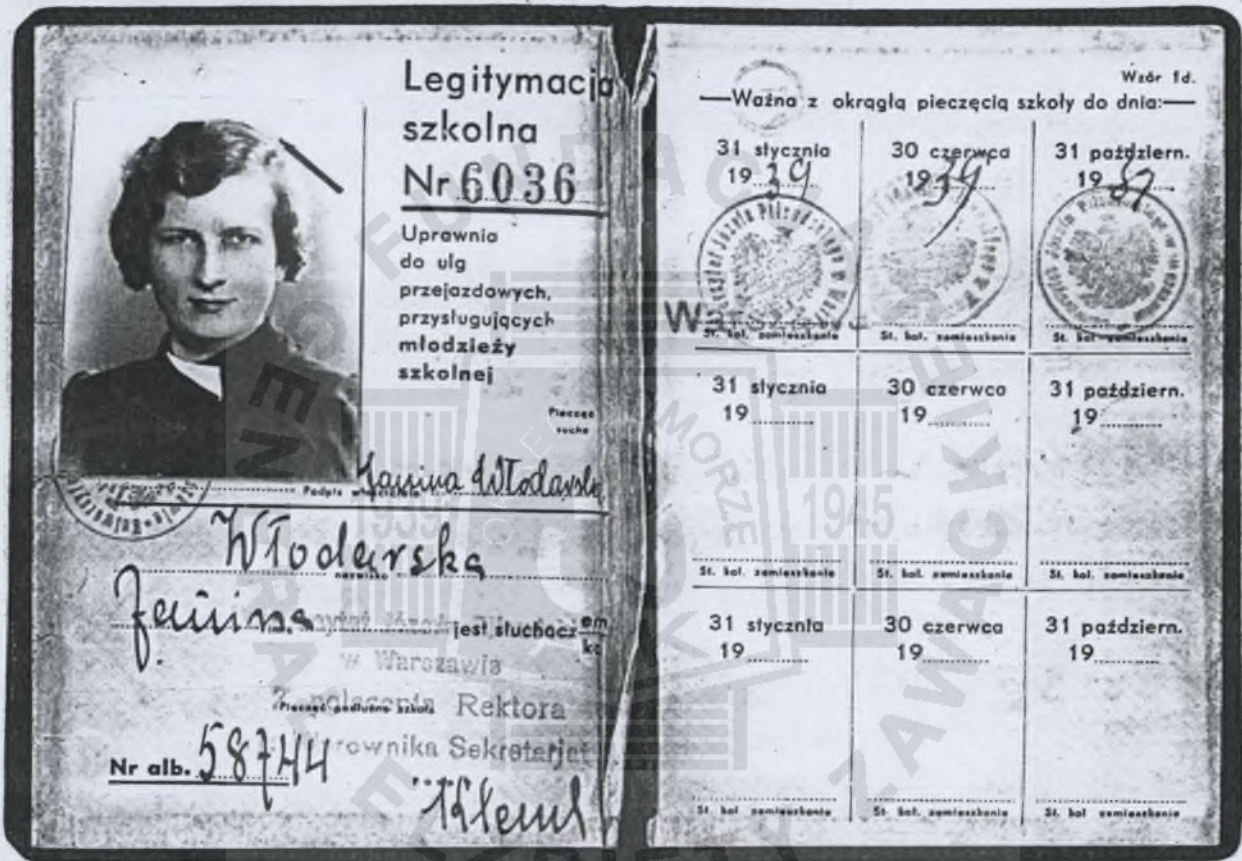 Legitymacja
szkolna
Nr 6036
Uprawnia
do ulg
przejazdowych,
przysługujących
młodzieży
szkolnej
Pieczęć
sucha
Podpis Janina Włodarska
Włodarska
nazwisko
Janina jest słuchacz em
ką
w Warszawie
Z polecenia Rektora
Pieczęć podłużna szkoły
Kierownika Sekretarjatu
Nr alb. 58744
Wzór 1d.
Ważna z okrągłą pieczęcią szkoły do dnia:
31 stycznia 30 czerwca 31 październ.
19 39 19 39 19
Józefa Piłsudskiego w
St. kol. zamieszkania St. kol. zamieszkania St. kol. zamieszkania
31 stycznia 30 czerwca 31 październ.
19 19 19
St. kol. zamieszkania St. kol. zamieszkania St. kol. zamieszkania
31 stycznia 30 czerwca 31 październ.
19 19 19
St. kol. zamieszkania St. kol. zamieszkania St. kol. zamieszkania
1939 1945
POMORZE
ZAWACKIEJ